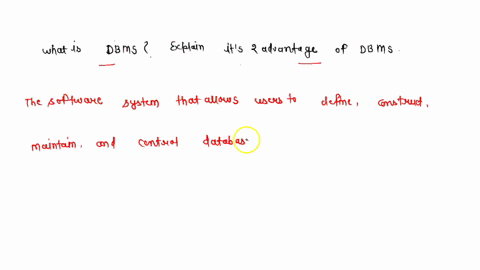 what is DBMS? Explain it's 2 advantage of DBMS.
The software system that allows users to define, construct,
maintain, and control databas